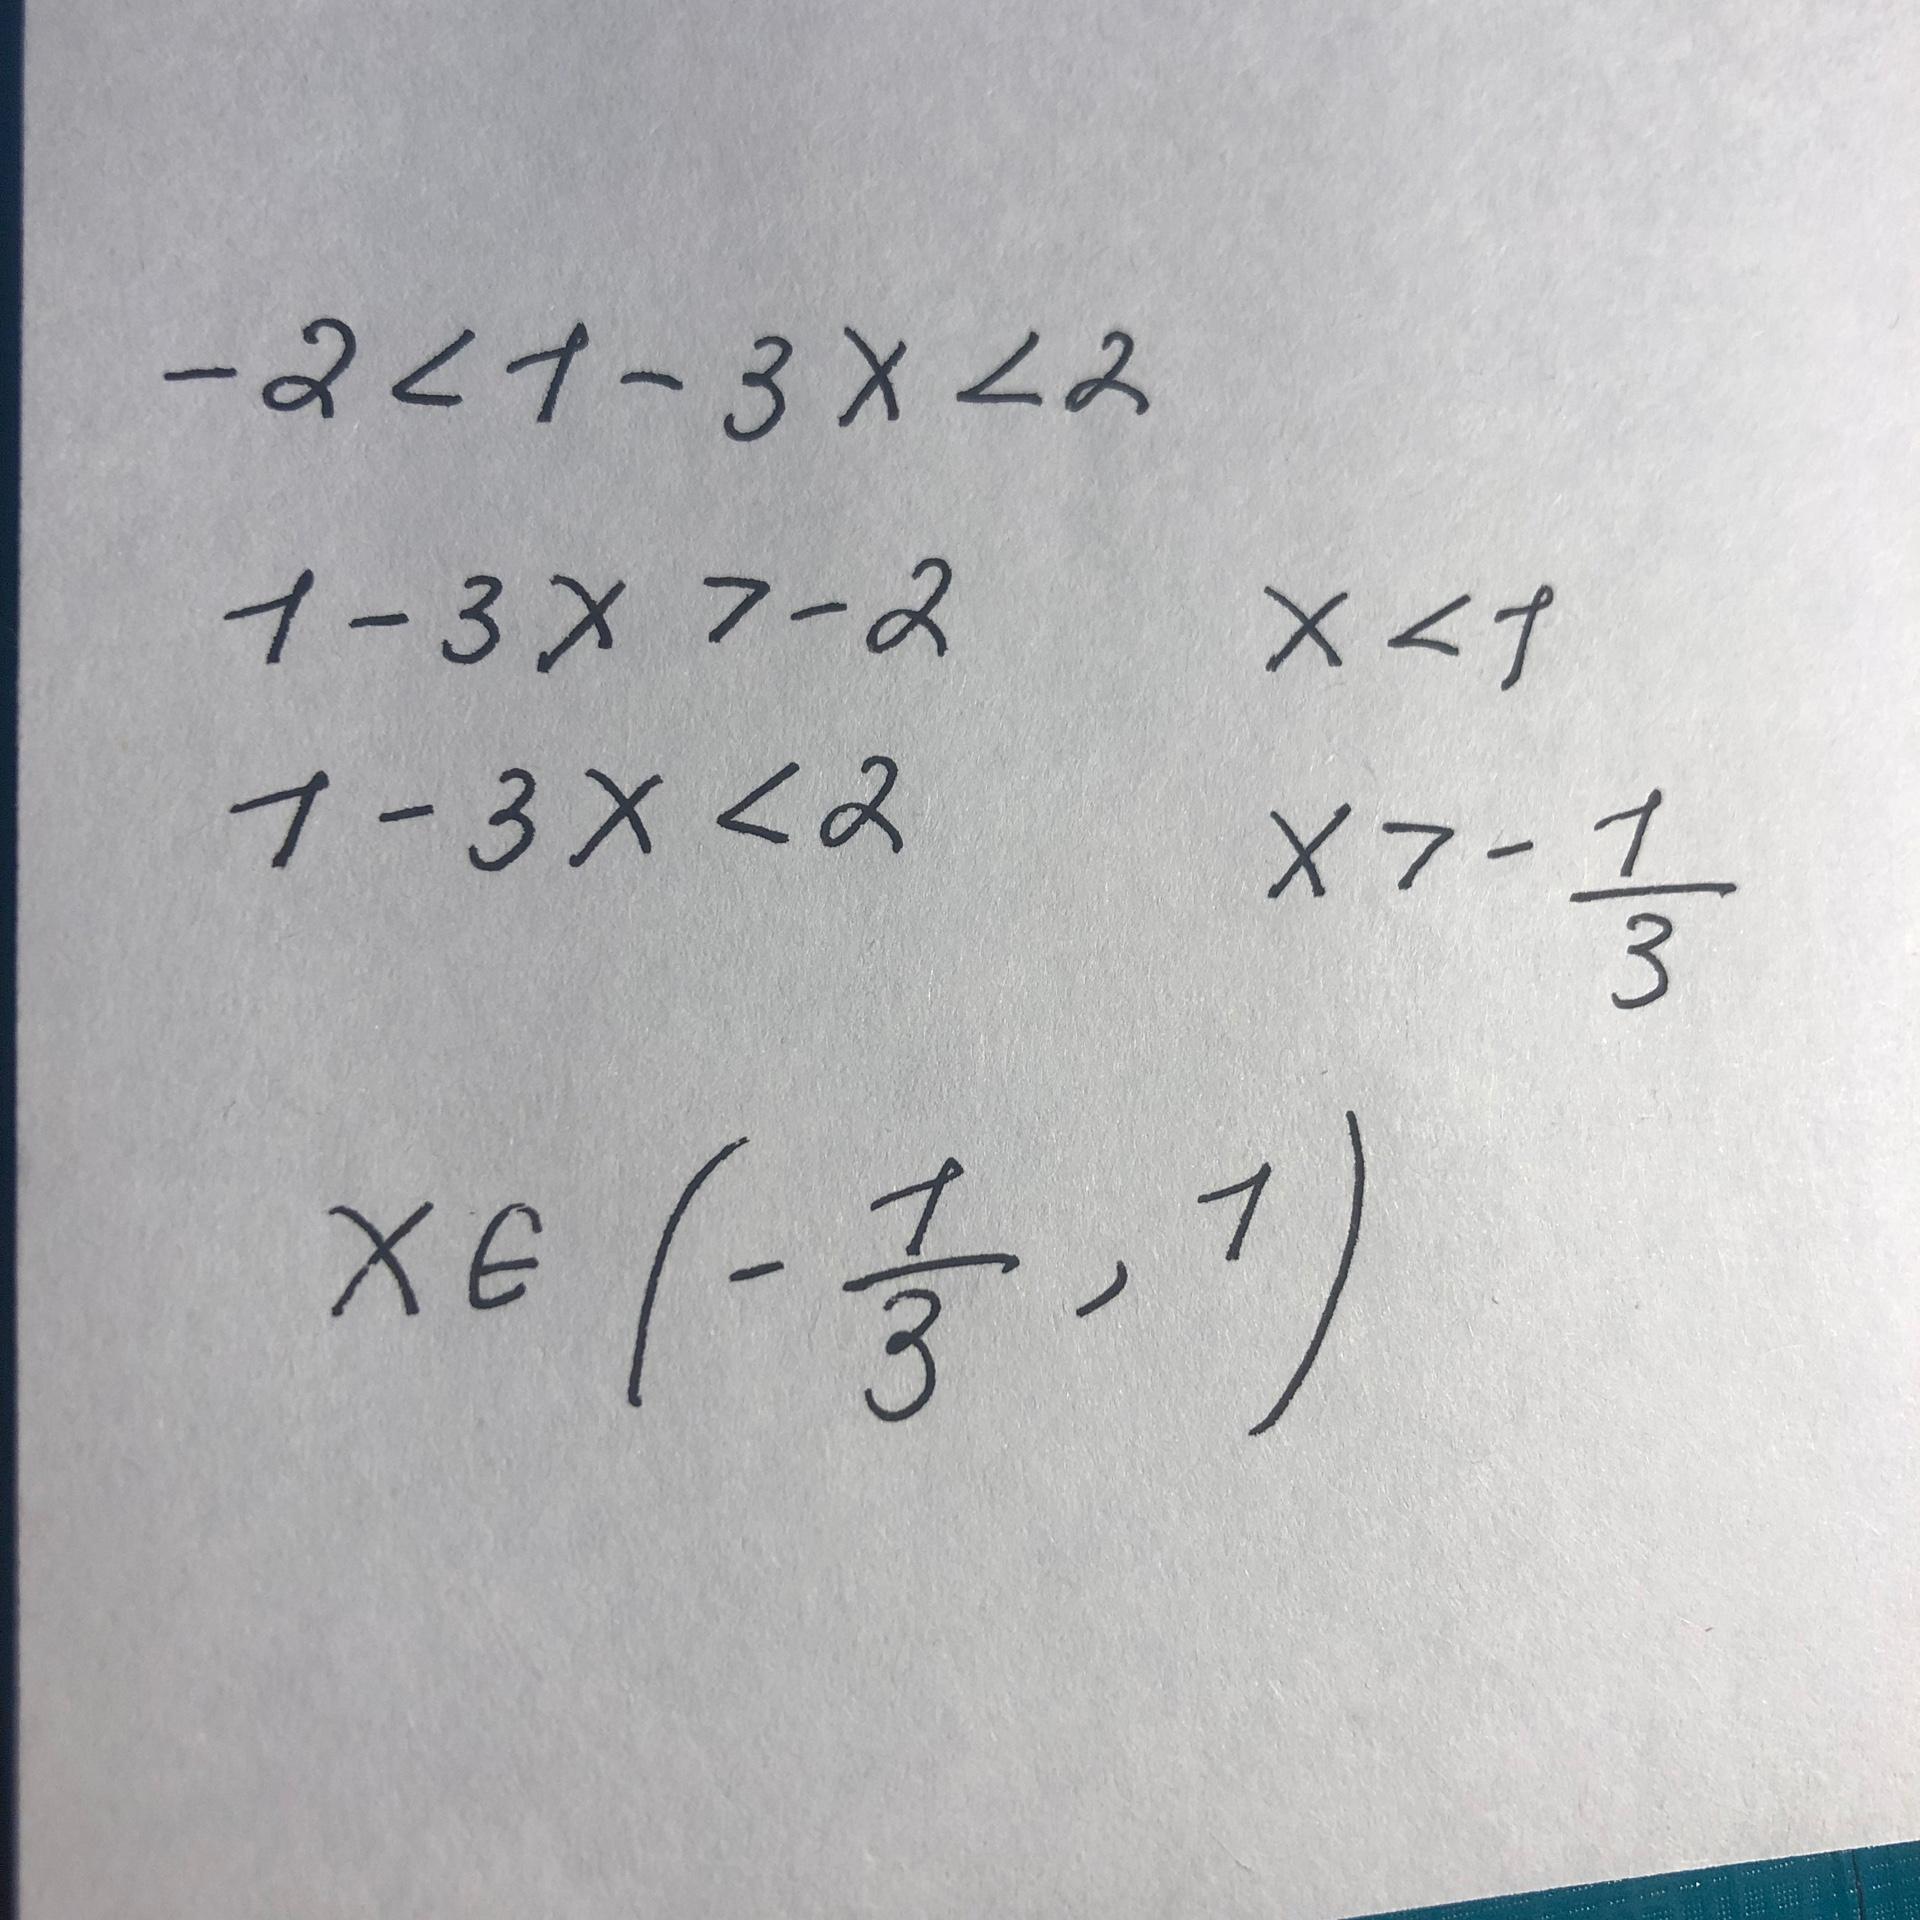 -2<1-3x<2
1-3x>-2 x<1
1-3x<2 x>-1/3
x∈(-1/3,1)